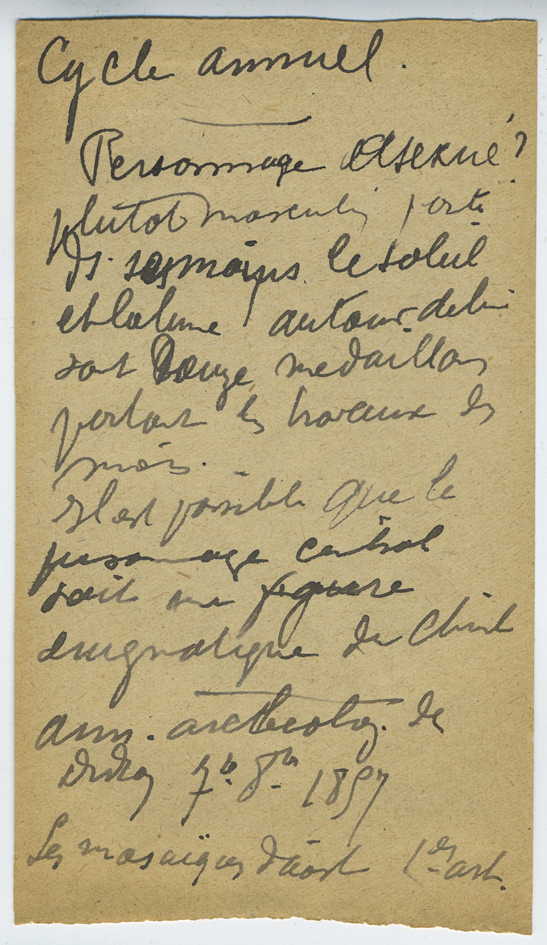 Cycle annuel.
Personnage asexué?
plutot masculin porte
ds. ses mains le soleil
et la lune autour de lui
sont Douze medaillons
portant les travaux des
mois.
Il est possible que le
personnage central
soit une figure
enigmatique du Christ
Ann. archeolog. de
Didron 7b. 8b. 1857
Les mosaïques d'aost 1er art.